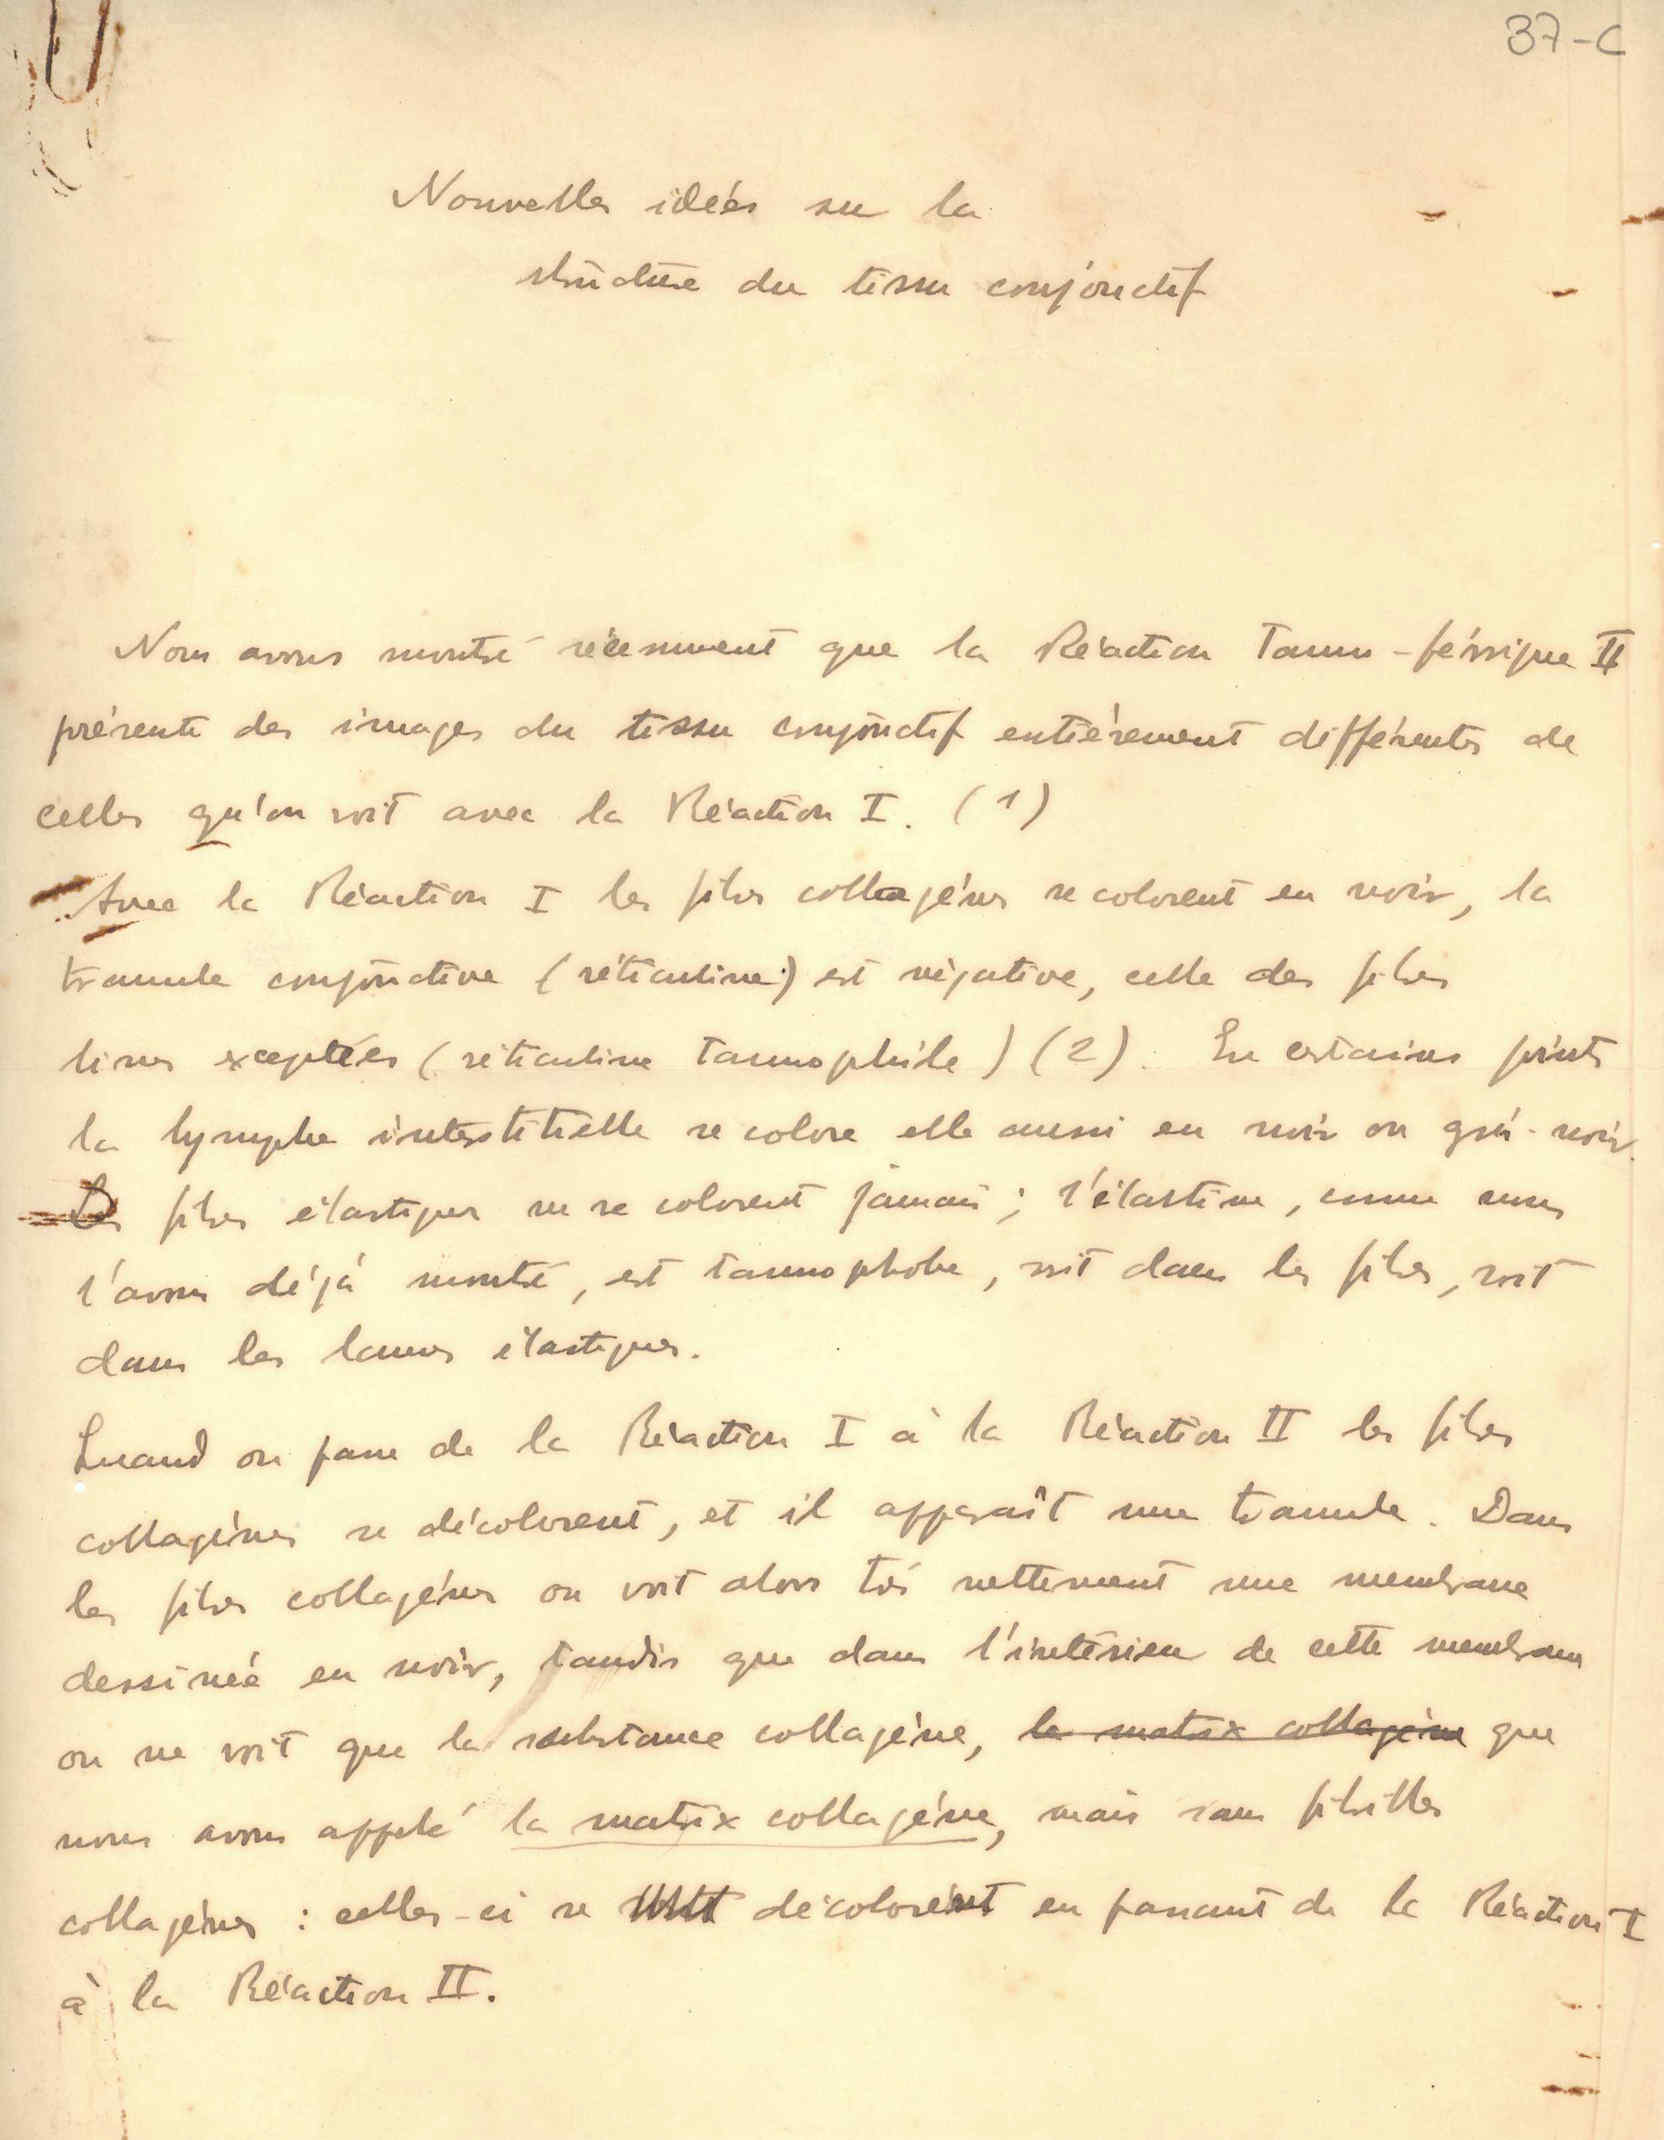 37-C
Nouvelles idées sur la
structure du tissu conjonctif
Nous avons montré récemment que la Réaction Tanno-férrique II
présente des images du tissu conjonctif entièrement différentes de
celles qu'on voit avec la Réaction I. (1)
Avec la Réaction I les fibres collagénes se colorent en noir, la
tramule conjonctive (réticuline) est négative, celle des fibres
lisses exceptées (réticuline tannophile) (2). En certains points
la lymphe interstitielle se colore elle aussi en noir ou gris-noir.
Les fibres élastiques ne se colorent jamais; l'élastine, comme nous
l'avons déjà montré, est tannophobe, soit dans les fibres, soit
dans les lames élastiques.
Quand on passe de la Réaction I à la Réaction II les fibres
collagènes se décolorent, et il apparaît une tramule. Dans
les fibres collagénes on voit alors très nettement une membrane
dessinée en noir, tandis que dans l'intérieur de cette membrane
on ne voit que la substance collagène, la matrix collagène que
nous avons appelé la matrix collagéne, mais sans fibrilles
collagènes : celles-ci se décolorent en passant de la Réaction I
à la Réaction II.